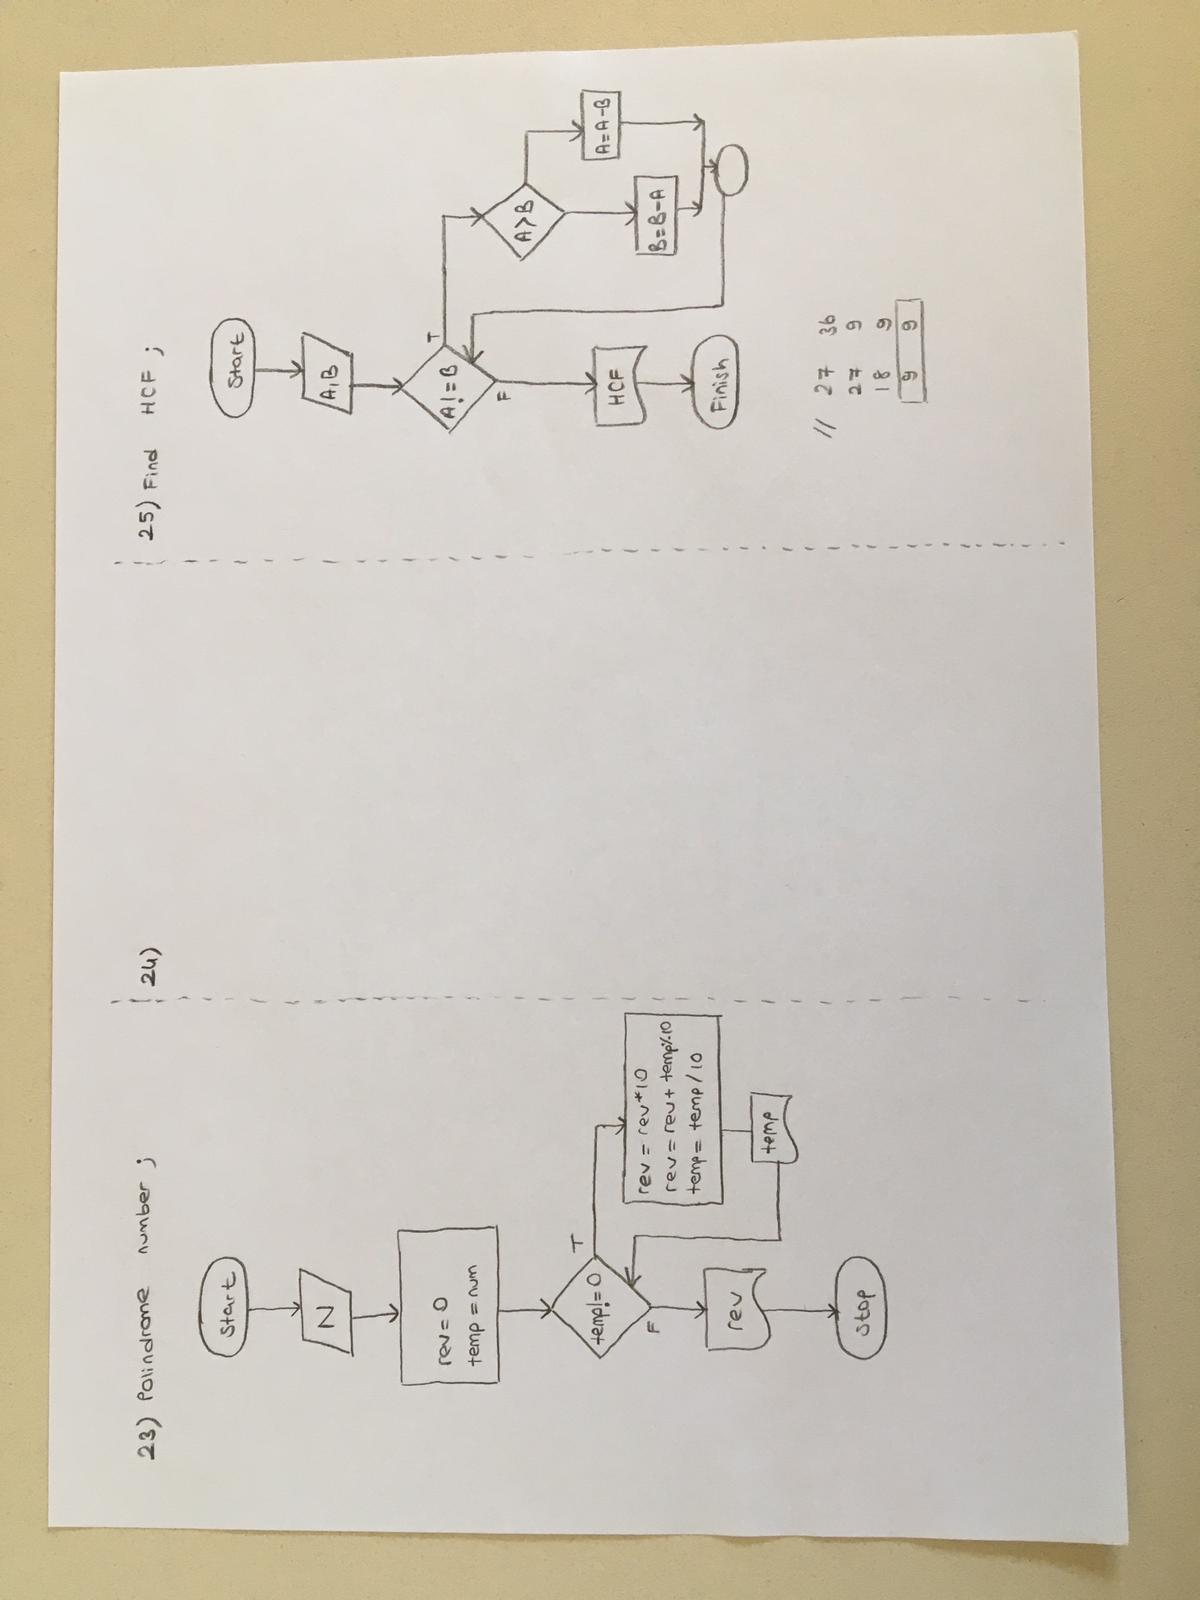 23) Palindrome number ;
Start
N
rev = 0
temp = num
temp != 0
T
F
rev = rev*10
rev = rev + temp%10
temp = temp / 10
temp
rev
stop
24)
25) Find HCF ;
Start
A, B
A != B
T
F
A > B
A = A - B
B = B - A
HCF
Finish
// 27 36
27 9
18 9
9 9